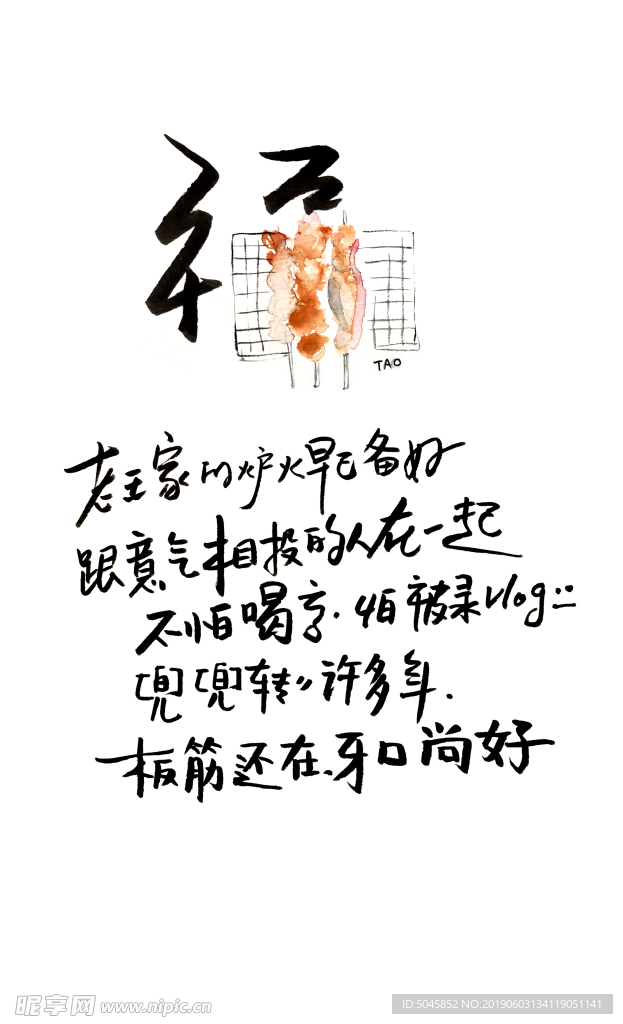 福
TAO
老王家的炉火早已备好
跟意气相投的人在一起
不怕喝高.怕被录vlog::
兜兜转〃许多年.
板筋还在、牙口尚好
昵享网 www.nipic.cn
ID:5045852 NO:20190603134119051141